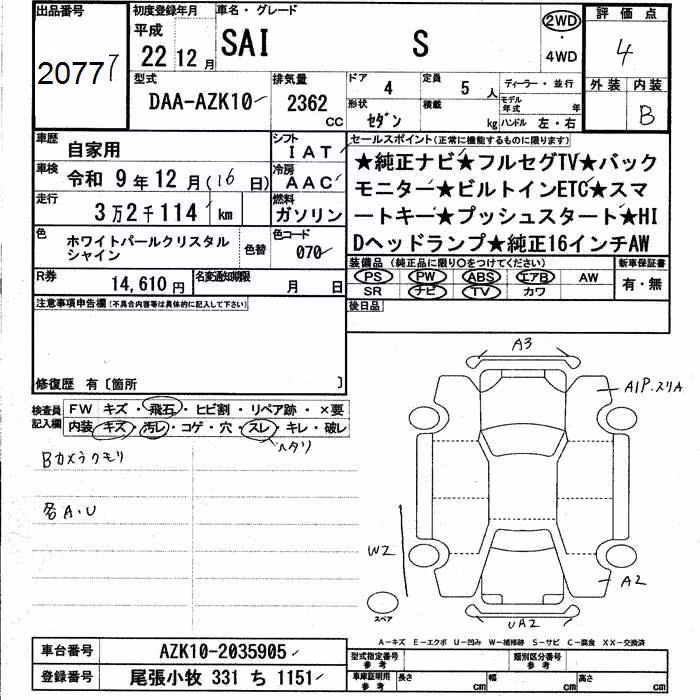 出品番号 初度登録年月 車名・グレード 2WD 評価点
20777 平成 22年12月 SAI S ・ 4
4WD
型式 排気量 ドア 4 定員 5人 ディーラー・並行 外装 内装
DAA-AZK10 2362 CC 形状 セダン 積載 kg モデル年式 年 B
ハンドル 左・右
車歴 自家用 シフト IAT セールスポイント(正常に機能するものに限ります)
車検 令和 9年12月(16日) 冷房 AAC ★純正ナビ★フルセグTV★バック
走行 3万2千114 km 燃料 ガソリン モニター★ビルトインETC★スマ
ートキー★プッシュスタート★HI
色 ホワイトパールクリスタル 色替 色コード 070 Dヘッドランプ★純正16インチAW
シャイン
装備品(純正品に限り〇をつけてください) 新車保証書
R券 14,610円 名変通知期限 月 日 PS PW ABS エアB AW 有・無
SR ナビ TV カワ
注意事項申告欄(不具合内容等は具体的に記入して下さい) 後日品
修復歴 有〔箇所 〕
A3
A1P.スリA
検査員 FW キズ・飛石・ヒビ割・リペア跡・×要
記入欄 内装・キズ・汚レ・コゲ・穴・スレ・キレ・破レ
ヘタリ
Bカメラクモリ
各A.U
W2
A2
スペア
UA2
A-キズ E-エクボ U-凹み W-補修跡 S-サビ C-腐食 XX-交換済
車台番号 AZK10-2035905 型式指定番号 参考 類別区分番号 参考
登録番号 尾張小牧 331 ち 1151 車庫証明用 参考 長さ cm 幅 cm 高さ cm